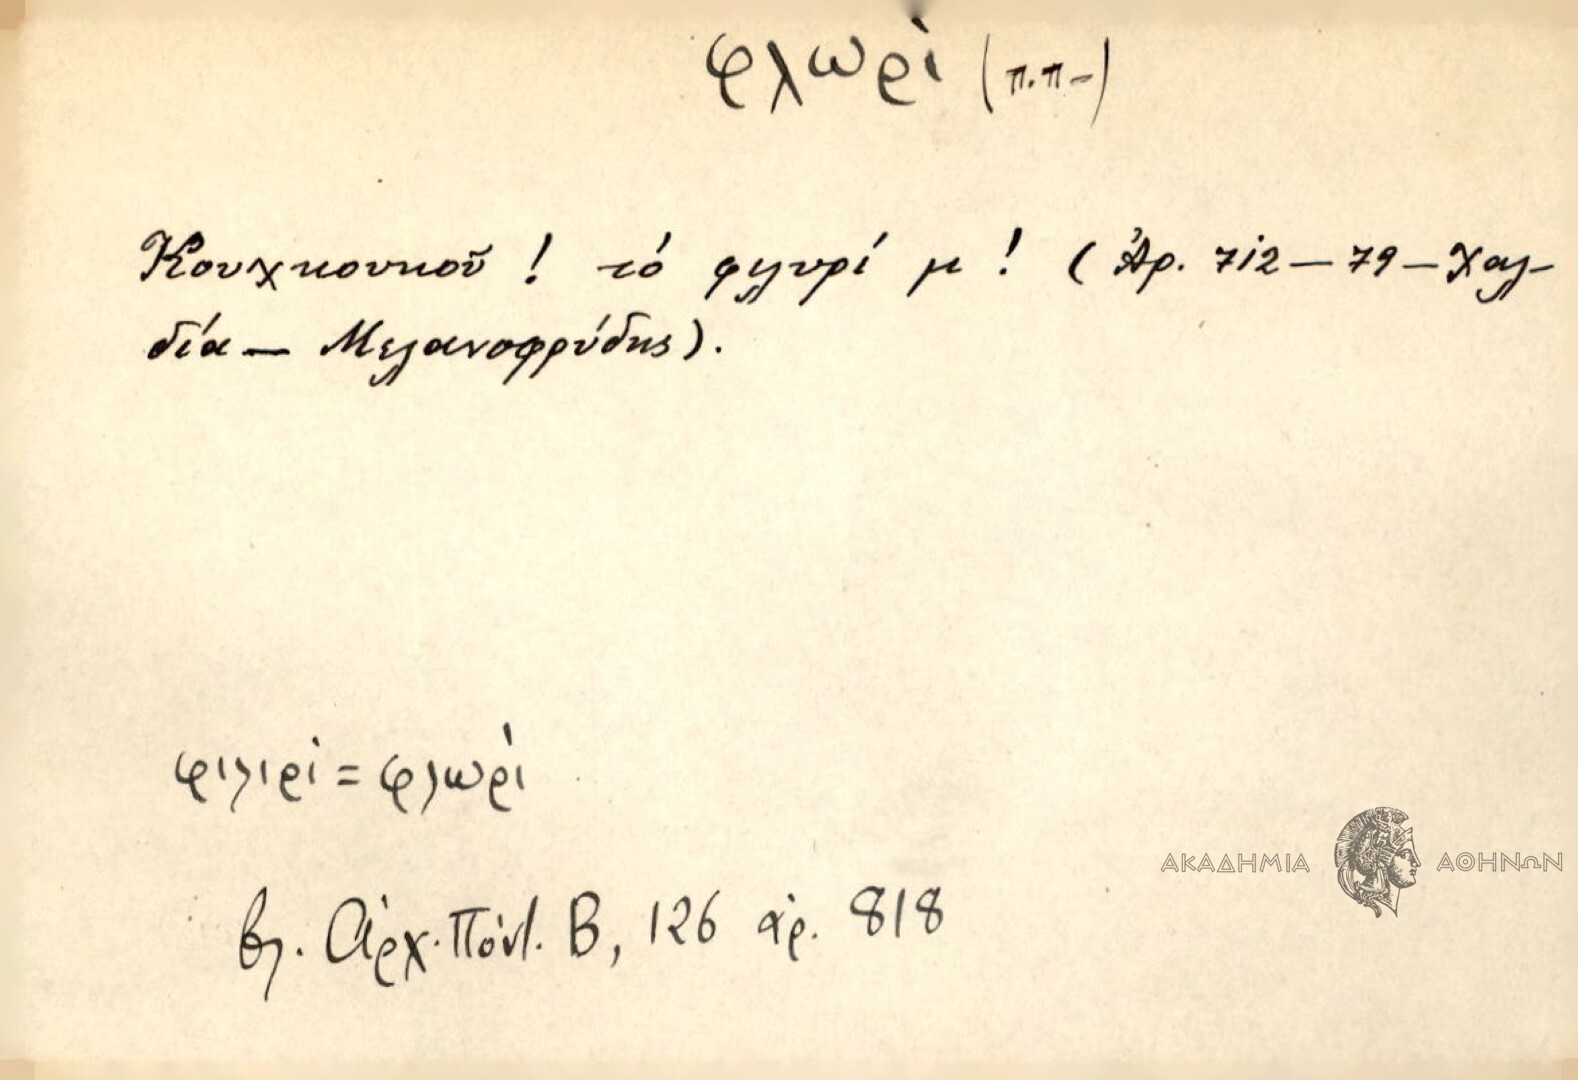 φλωρὶ (π.π-)
Κουχκουκοῦ ! τό φλυρί μ ! ( Ἀρ. 712 — 79 — Χαλ-
δία — Μελανοφρύδης ) .
φιλιρὶ = φλωρὶ
βλ. Ἀρχ. Πόντ. Β, 126 ἀρ. 818
ΑΚΑΔΗΜΙΑ ΑΘΗΝΩΝ